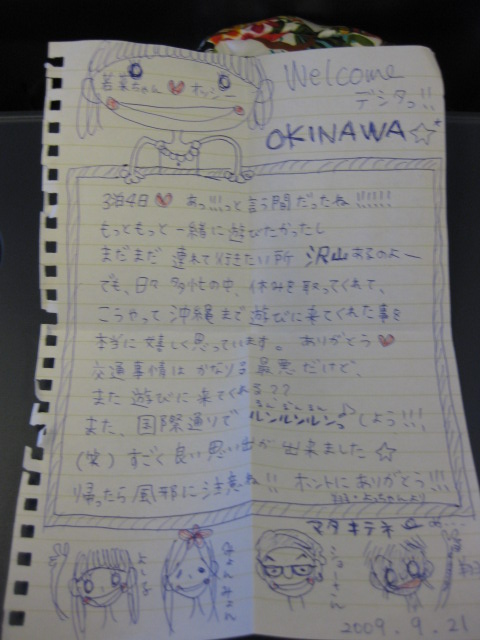 Welcome
デシタっ!!
若菜ちゃん ♥ オッシー
OKINAWA☆
3泊4日♥ あっ!!!っと言う間だったね!!!!!!
もっともっと一緒に遊びたかったし
まだまだ 連れて行きたい所 沢山あるのよー
でも、日々 多忙の中、休みを取ってくれて、
こうやって 沖縄まで遊びに来てくれた事を
本当に嬉しく思っています。 ありがとう♥
交通事情は かなりる最悪だけど、
また 遊びに来てくれる??
また、国際通りで ルンルンルンっ♪しよう!!!
(笑) すごく良い思い出が出来ました☆
帰ったら風邪に注意ね!! ホントにありがとう!!!
マタキテネ
2009.9.21